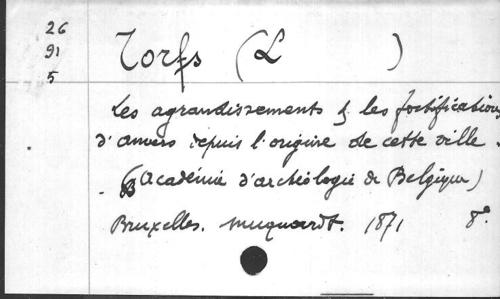 26
91
5
Torfs (L )
Les agrandissements & les fortifications
d'anvers depuis l'origine de cette ville.
(Académie d'archéologie de Belgique)
Bruxelles. Muquardt. 1871 8°